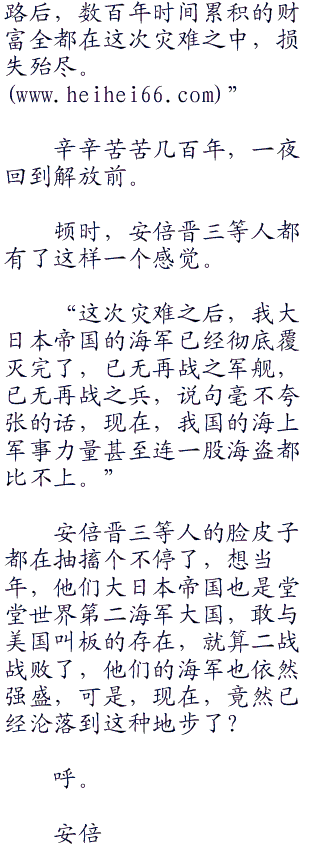 路后，数百年时间累积的财
富全都在这次灾难之中，损
失殆尽。
(www.heihei66.com)”
辛辛苦苦几百年，一夜
回到解放前。
顿时，安倍晋三等人都
有了这样一个感觉。
“这次灾难之后，我大
日本帝国的海军已经彻底覆
灭完了，已无再战之军舰，
已无再战之兵，说句毫不夸
张的话，现在，我国的海上
军事力量甚至连一股海盗都
比不上。”
安倍晋三等人的脸皮子
都在抽搐个不停了，想当
年，他们大日本帝国也是堂
堂世界第二海军大国，敢与
美国叫板的存在，就算二战
战败了，他们的海军也依然
强盛，可是，现在，竟然已
经沦落到这种地步了？
呼。
安倍